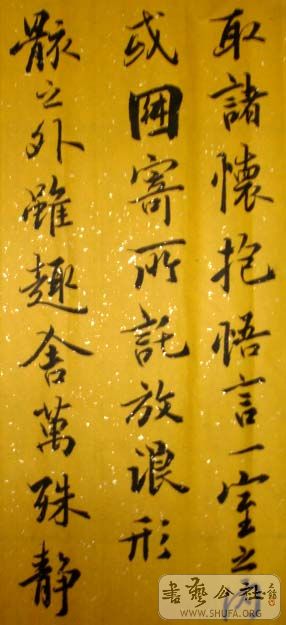 取諸懷抱悟言一室之内
或因寄所託放浪形
骸之外雖趣舍萬殊静
書藝公社
WWW.SHUFA.ORG